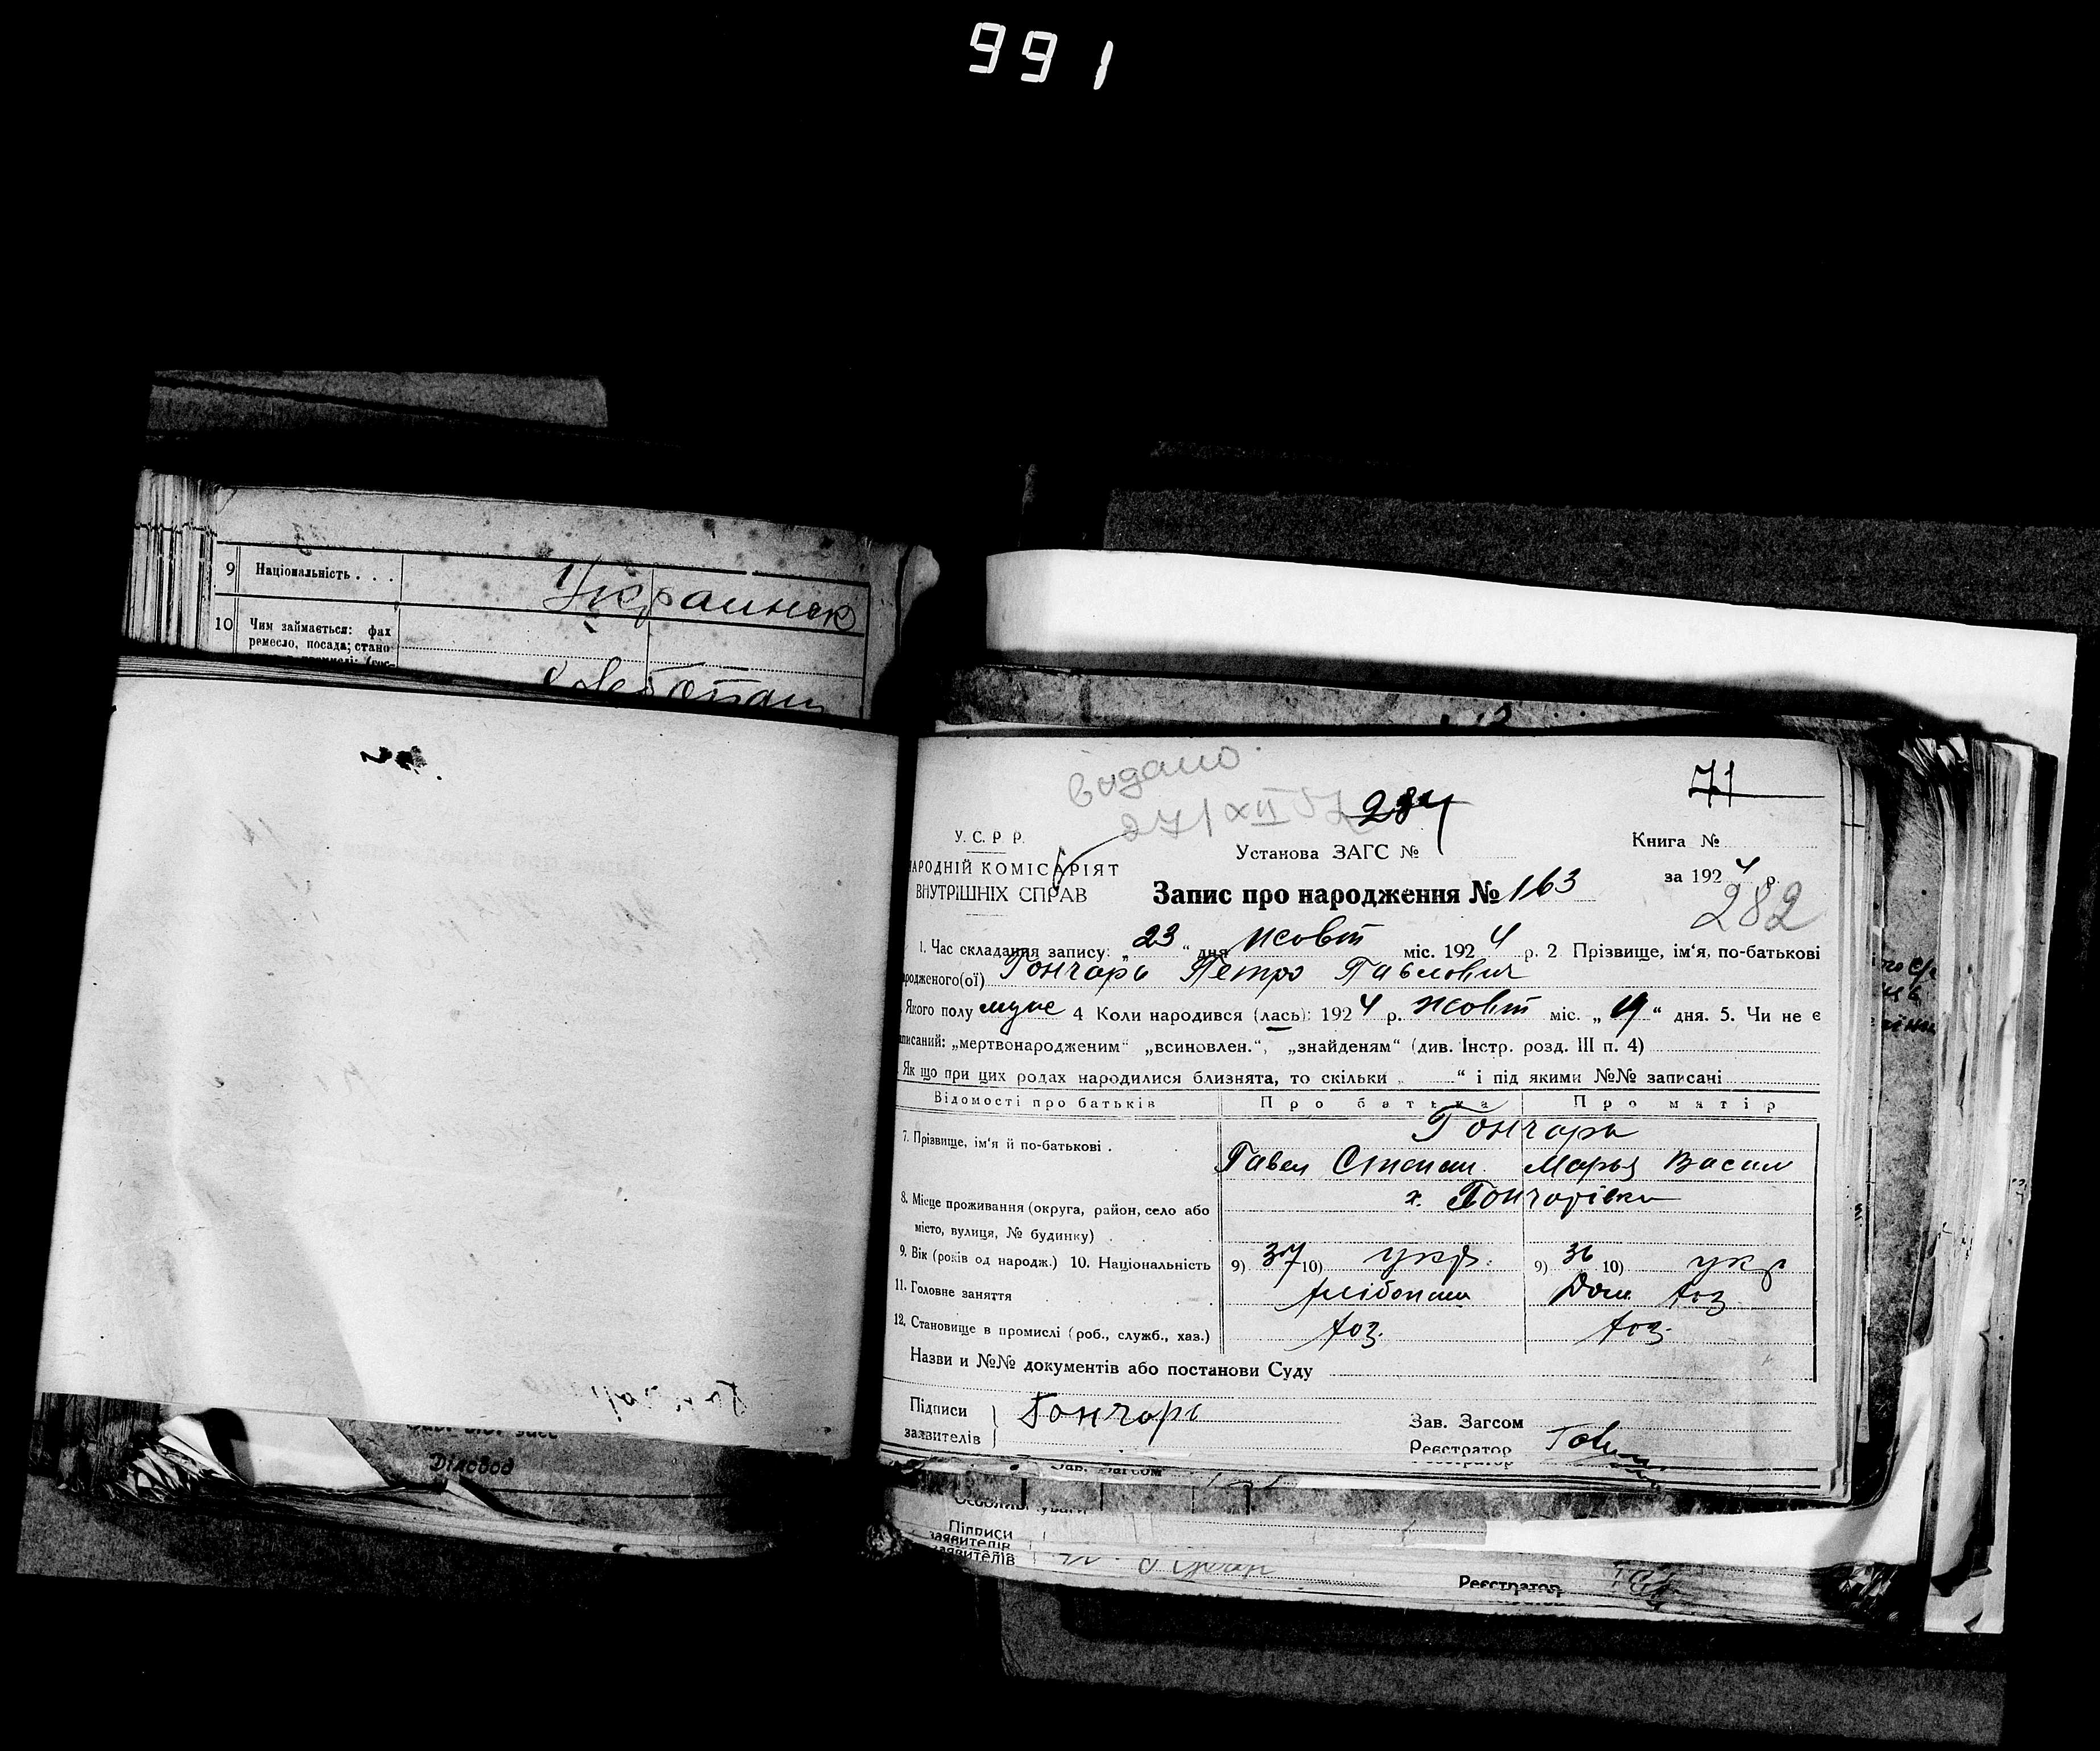 991
9 Національність . . . Украинск
10 Чим займається: фах
ремесло, посада; стано
Хлебопаш
видано
27/XII 57
71
284
У. С. Р Р.
Установа ЗАГС №
Книга №
АРОДНІЙ КОМІСАРІЯТ
за 1924 р.
ВНУТРІШНІХ СПРАВ
Запис про народження № 163
282
1. Час складання запису: „23“ дня жовт міс. 1924 р. 2 Прізвище, ім‘я, по-батькові
родженого(ої) Гончарь Петро Павлович
Якого полу муж 4 Коли народився (лась): 1924 р. жовт міс. „ “ дня. 5. Чи не є
аписаний: „мертвонародженим“ „всиновлен.“, „знайденям“ (див. Інстр. розд. III п. 4)
Як що при цих родах народилися близнята, то скільки „ “ і під якими №№ записані
Відомості про батьків Про батька Про матір
7. Прізвище, ім‘я й по-батькові . Гончарь
Павел Степан Марья Васил
8. Місце проживання (округа, район, село або х. Гончарівка
місто, вулиця, № будинку) .
9. Вік (років од народж.) 10. Національність 9) 37 10) укр. 9) 36 10) укр
11. Головне заняття хлібопаш Дом хоз
12. Становище в промислі (роб., служб., хаз.) хоз. хоз.
Назви и №№ документів або постанови Суду
Підписи Гончарь Зав. Загсом
заявителів Реєстратор
Діловод
Зав. Загсом
Підписи
заявителів
заявителів
Реєстратор